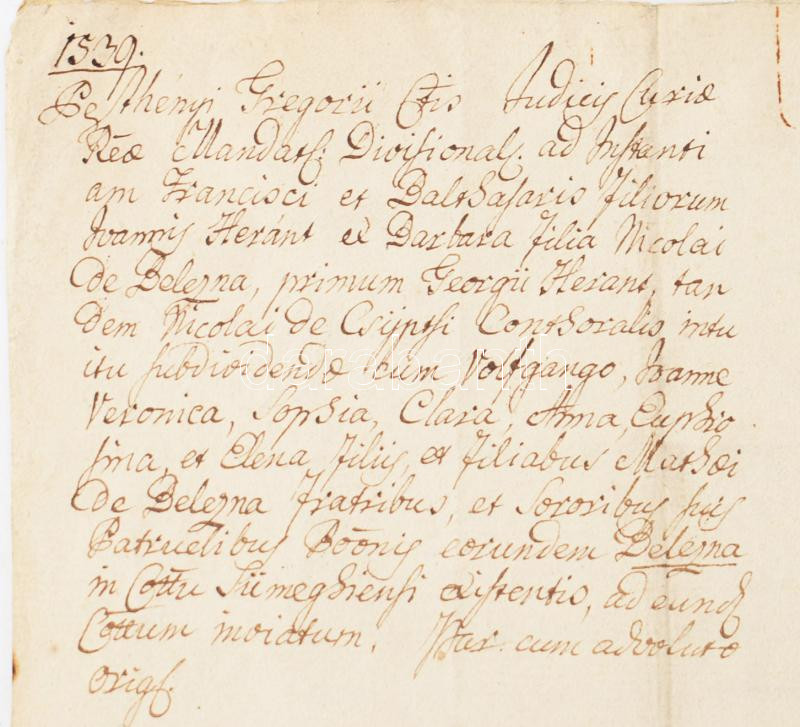 1539.
Pesthényi Gregorii Ctis Judicis Curiæ
Reæ Mandatf: Divisional. ad Instanti
am Francisci et Balthasaris Filiorum
Joannis Heránt ex Barbara Filia Nicolai
de Belezna, primum Georgii Herant, tan
dem Nicolai de Csijptsi Conthoralis intu
itu subdividendæ cum Volfgango, Joanne
Veronica, Sophia, Clara, Anna, Euphro
sina, et Elena Filiis, et Filiabus Mathæi
de Belezna Fratribus, et Sororibus suis
Patruelibus Poōnis eorundem Belezna
in Cottu Sümeghiensi existentis, ad eund
Cottum inviatum. Par cum advoluto
origf.